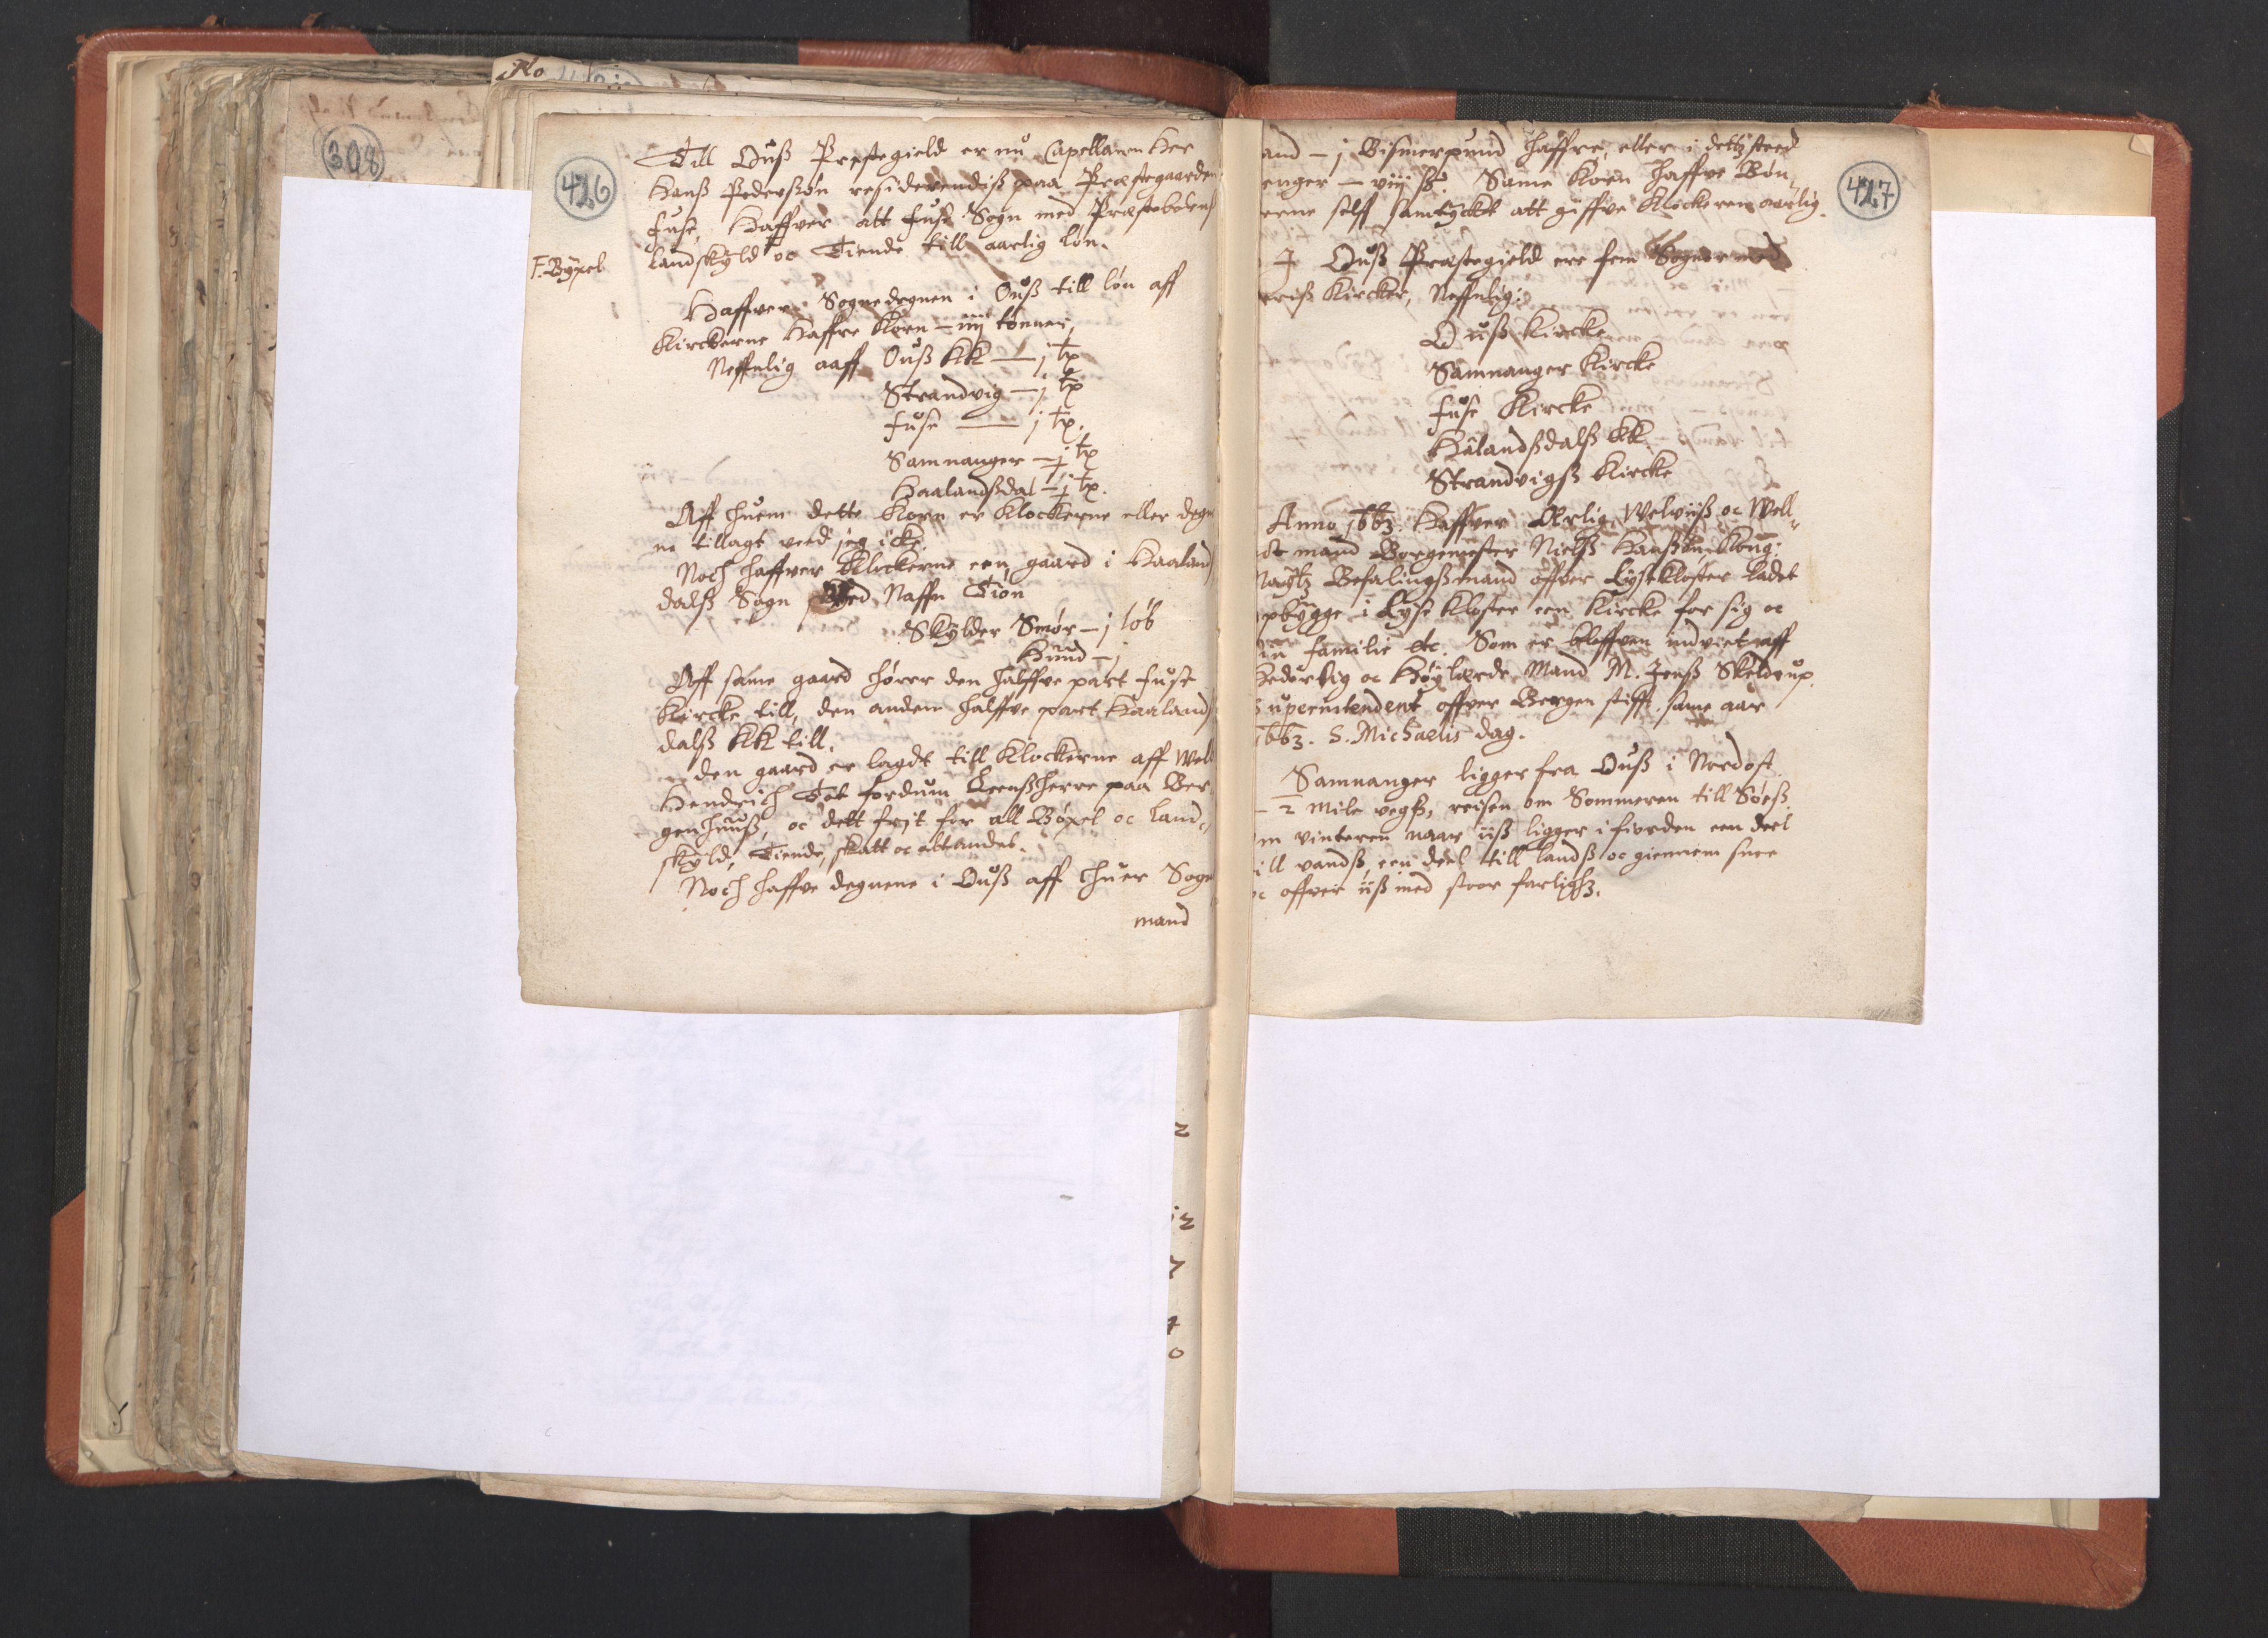 308
426
Till Ouß Prestegield er nu Capellanen Her
Hanß Pederßøn residerendiß paa Præstegaarden
Fuse, Haffver att Fuse Sogn med Præstebolens
landskyld oc Tiende till aarlig løn.
F. Bÿxel
Haffver Sognedegnen i Ouß till løn aff
Kirckerne Haffre Korn – iiij tønner,
Neffnlig aff Ouß KK — j tꝫ
Strandvig — j tꝫ
Fuse — j tꝫ.
Samnanger — j tꝫ
Haalandßdal — j tꝫ.
Aff huem dette Korn er Klockerne eller degne
ne tillagt veed jeg icke.
Noch haffver Klockerne een gaard i Haaland
dalß Sogn ved Naffn Tion
Skylder Smør – j løb
Hund – j
Aff samme gaard hører den halffve part Fuse
Kircke till, den anden halffve part Haaland
dalß KK till.
den gaard er lagdt till Klockerne aff Well
Hendrich Tot fordum Leenßherre paa Ber
genhuuß, oc dett frjt for all Bøxel oc land-
skyld, Tiende, skatt oc alt andet.
Noch haffve degnene i Ouß aff huer Sogn
mand
427
and – j Bismerpund haffre, eller i dettz steed
enger – viij ß. Same Korn haffve Bøn-
erne self samtÿckt att giffve Klockeren aarlig.
I Ouß Præstegield ere fem Sogner med
eriß Kircker, Neffnlig:
Ouß Kircke
Samnanger Kircke
Fuse Kircke
Hålandßdalß KK
Strandvigß Kircke
Anno 1663. Haffver Ærlig, Welviiß oc Well-
dt mand Borgemester Nielß Hanßøn Kong:
Maÿtz Befalingßmand offver LyseKloster ladet
pbygge i Lyse Kloster een Kircke for sig oc
in familie etc. Som er bleffven indviet aff
Hederlig oc Høÿlærde Mand M. Jenß Skeldrup
Superintendent offver Bergen stifft, same aar
1663. S. Michaelis dag.
Samnanger ligger fra Ouß i Nordost
– 2 Mile vegß, reisen om Sommeren till Søeß.
m vinteren naar iiß ligger i fiorden een deel
ill vandß, een deel till landß oc giennem snee
oc offver iiß med stoor farlighꝫ.
2
12
7
4
0